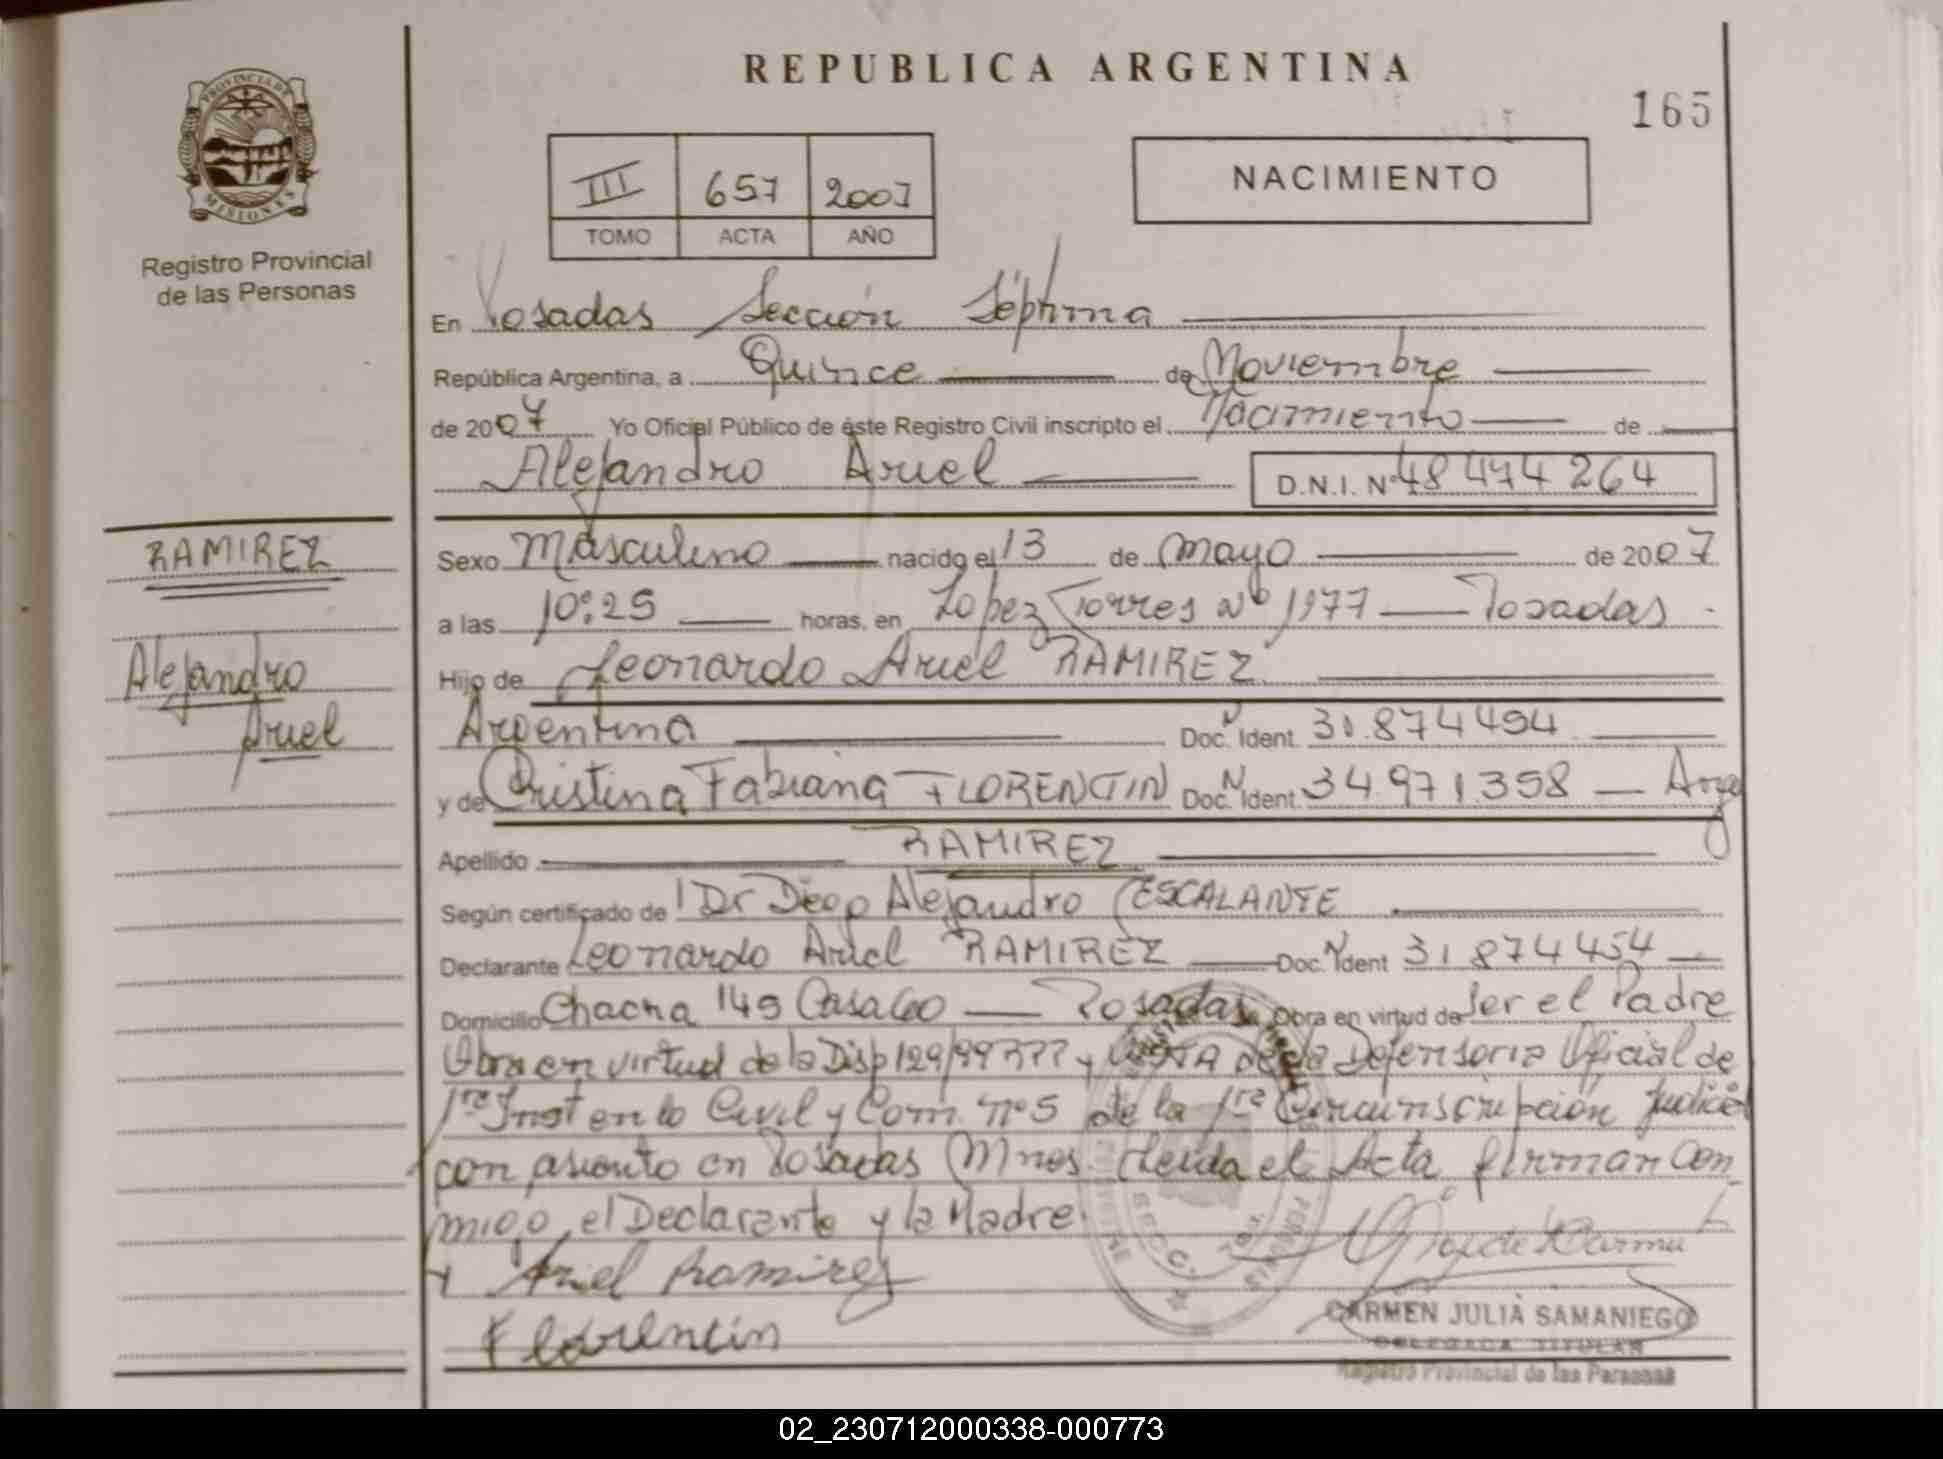 REPUBLICA ARGENTINA
165
PROVINCIA DE
MISIONES
Registro Provincial
de las Personas
III 657 2007
TOMO ACTA AÑO
NACIMIENTO
En Posadas Sección Séptima
República Argentina, a Quince de Noviembre
de 2007 Yo Oficial Público de éste Registro Civil inscripto el Nacimiento de
Alejandro Ariel D.N.I. Nº 48 474 264
RAMIREZ
Alejandro
Ariel
Sexo Masculino nacido el 13 de Mayo de 2007
a las 10:25 horas, en Lopez Torres Nº 1977 Posadas
Hijo de Leonardo Ariel RAMIREZ
Argentina Doc. Nº Ident. 31.874454
y de Cristina Fabiana FLORENTIN Doc. Nº Ident. 34.971.358 Arg
Apellido RAMIREZ
Según certificado de Dr Diego Alejandro ESCALANTE
Declarante Leonardo Ariel RAMIREZ Doc. Nº Ident 31 874454
Domicilio Chacra 149 Casa 60 Posadas Obra en virtud de Ser el Padre
Obra en virtud de la Disp 129/99 y de la Defensoria Oficial de
1ra Inst en lo Civil y Com. Nº 5 de la 1ra Circunscripción Judicial
con asiento en Posadas Mnes. Leida el Acta firman con
migo, el Declarante y la Madre.
Ariel Ramirez
Florentin
CARMEN JULIA SAMANIEGO
DELEGADA TITULAR
Registro Provincial de las Personas
02_230712000338-000773